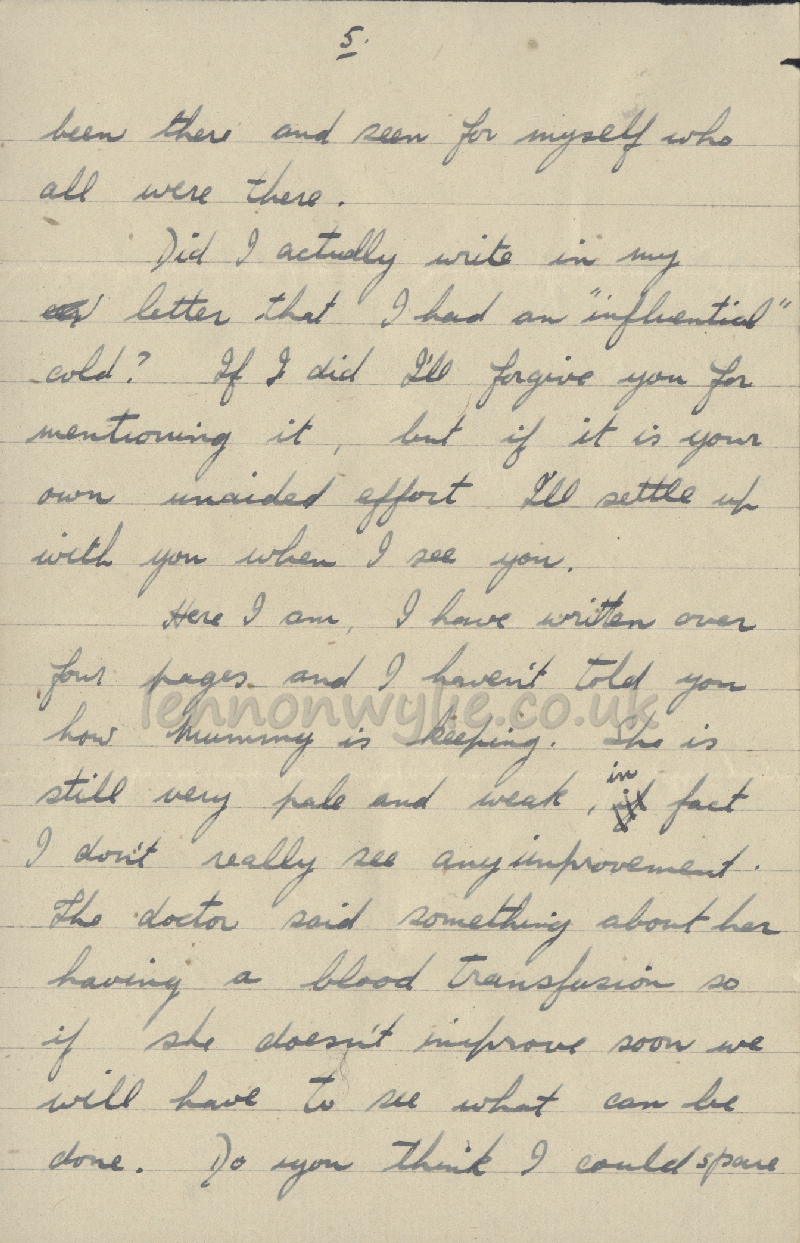 5.
been there and seen for myself who
all were there.
Did I actually write in my
letter that I had an "influential"
cold? If I did I'll forgive you for
mentioning it, but if it is your
own unaided effort I'll settle up
with you when I see you.
Here I am, I have written over
four pages and I haven't told you
lennonwylie.co.uk
how Mummy is keeping. She is
in
still very pale and weak, fact
I don't really see any improvement.
The doctor said something about her
having a blood transfusion so
if she doesn't improve soon we
will have to see what can be
done. Do you think I could spare